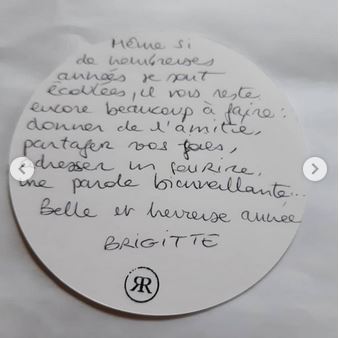 Même si
de nombreuses
années se sont
écoulées, il vous reste
encore beaucoup à faire :
donner de l'amitié,
partager vos joies,
adresser un sourire,
une parole bienveillante...
Belle et heureuse année
BRIGITTE
RR